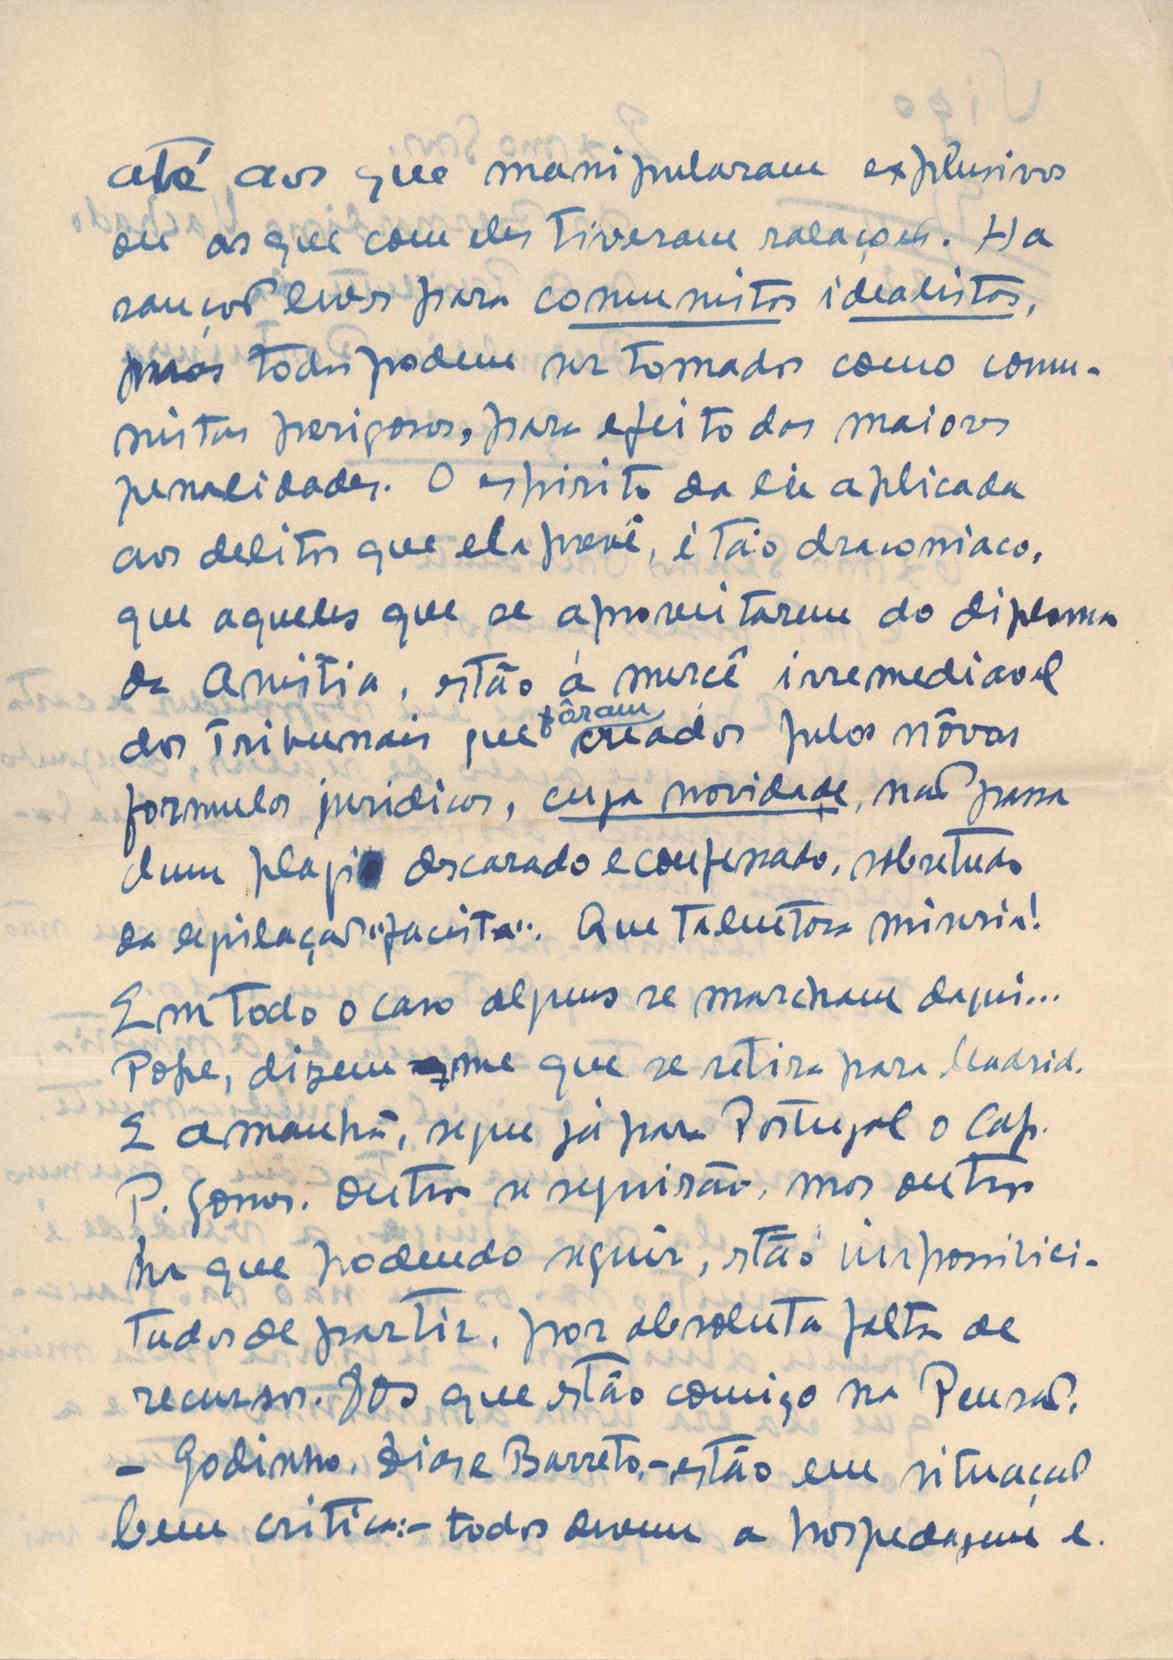 até aos que manipularam explusivos
ou as que com eles tiveram ralações. Ha
sançoẽs leves para comunistas idealistas,
mas todos podem ser tomados como comu-
nistas perigosos, para efeito das maiores
penalidades. O espirito da lei aplicada
aos delitos que ela prevê, é tão draconiaco,
que aqueles que se aproveitarem do diploma
da Amistia, estão á mercê irremediavel
dos Tribunais que fôram creados pelas nóvas
formulas juridicas, cuja novidade, naõ passa
dum plagio descarado e confessado, sobretudo
da legislaçaõ "facista". Que tal
miseria!
Em todo o caso alguns se marcham daqui...
Pope, dizem-me que se retira para Madrid.
E amanhã, segue já para Portugal o Cap.
P. Gomes. Outros se seguirão, mas outros
ha que podendo seguir, estão impossibili-
tados de partir, por absoluta falta de
recursos. Os que estão comigo na Pensaõ,
- Godinho, Dias e Barreto,- estão em situaçaõ
bem critica:- todos devem a hospedagem e.
Vigo